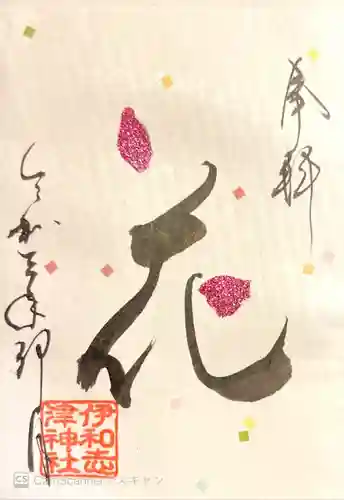 奉拝
花
令和三年卯月
伊和志
津神社
CS CamScanner でスキャン